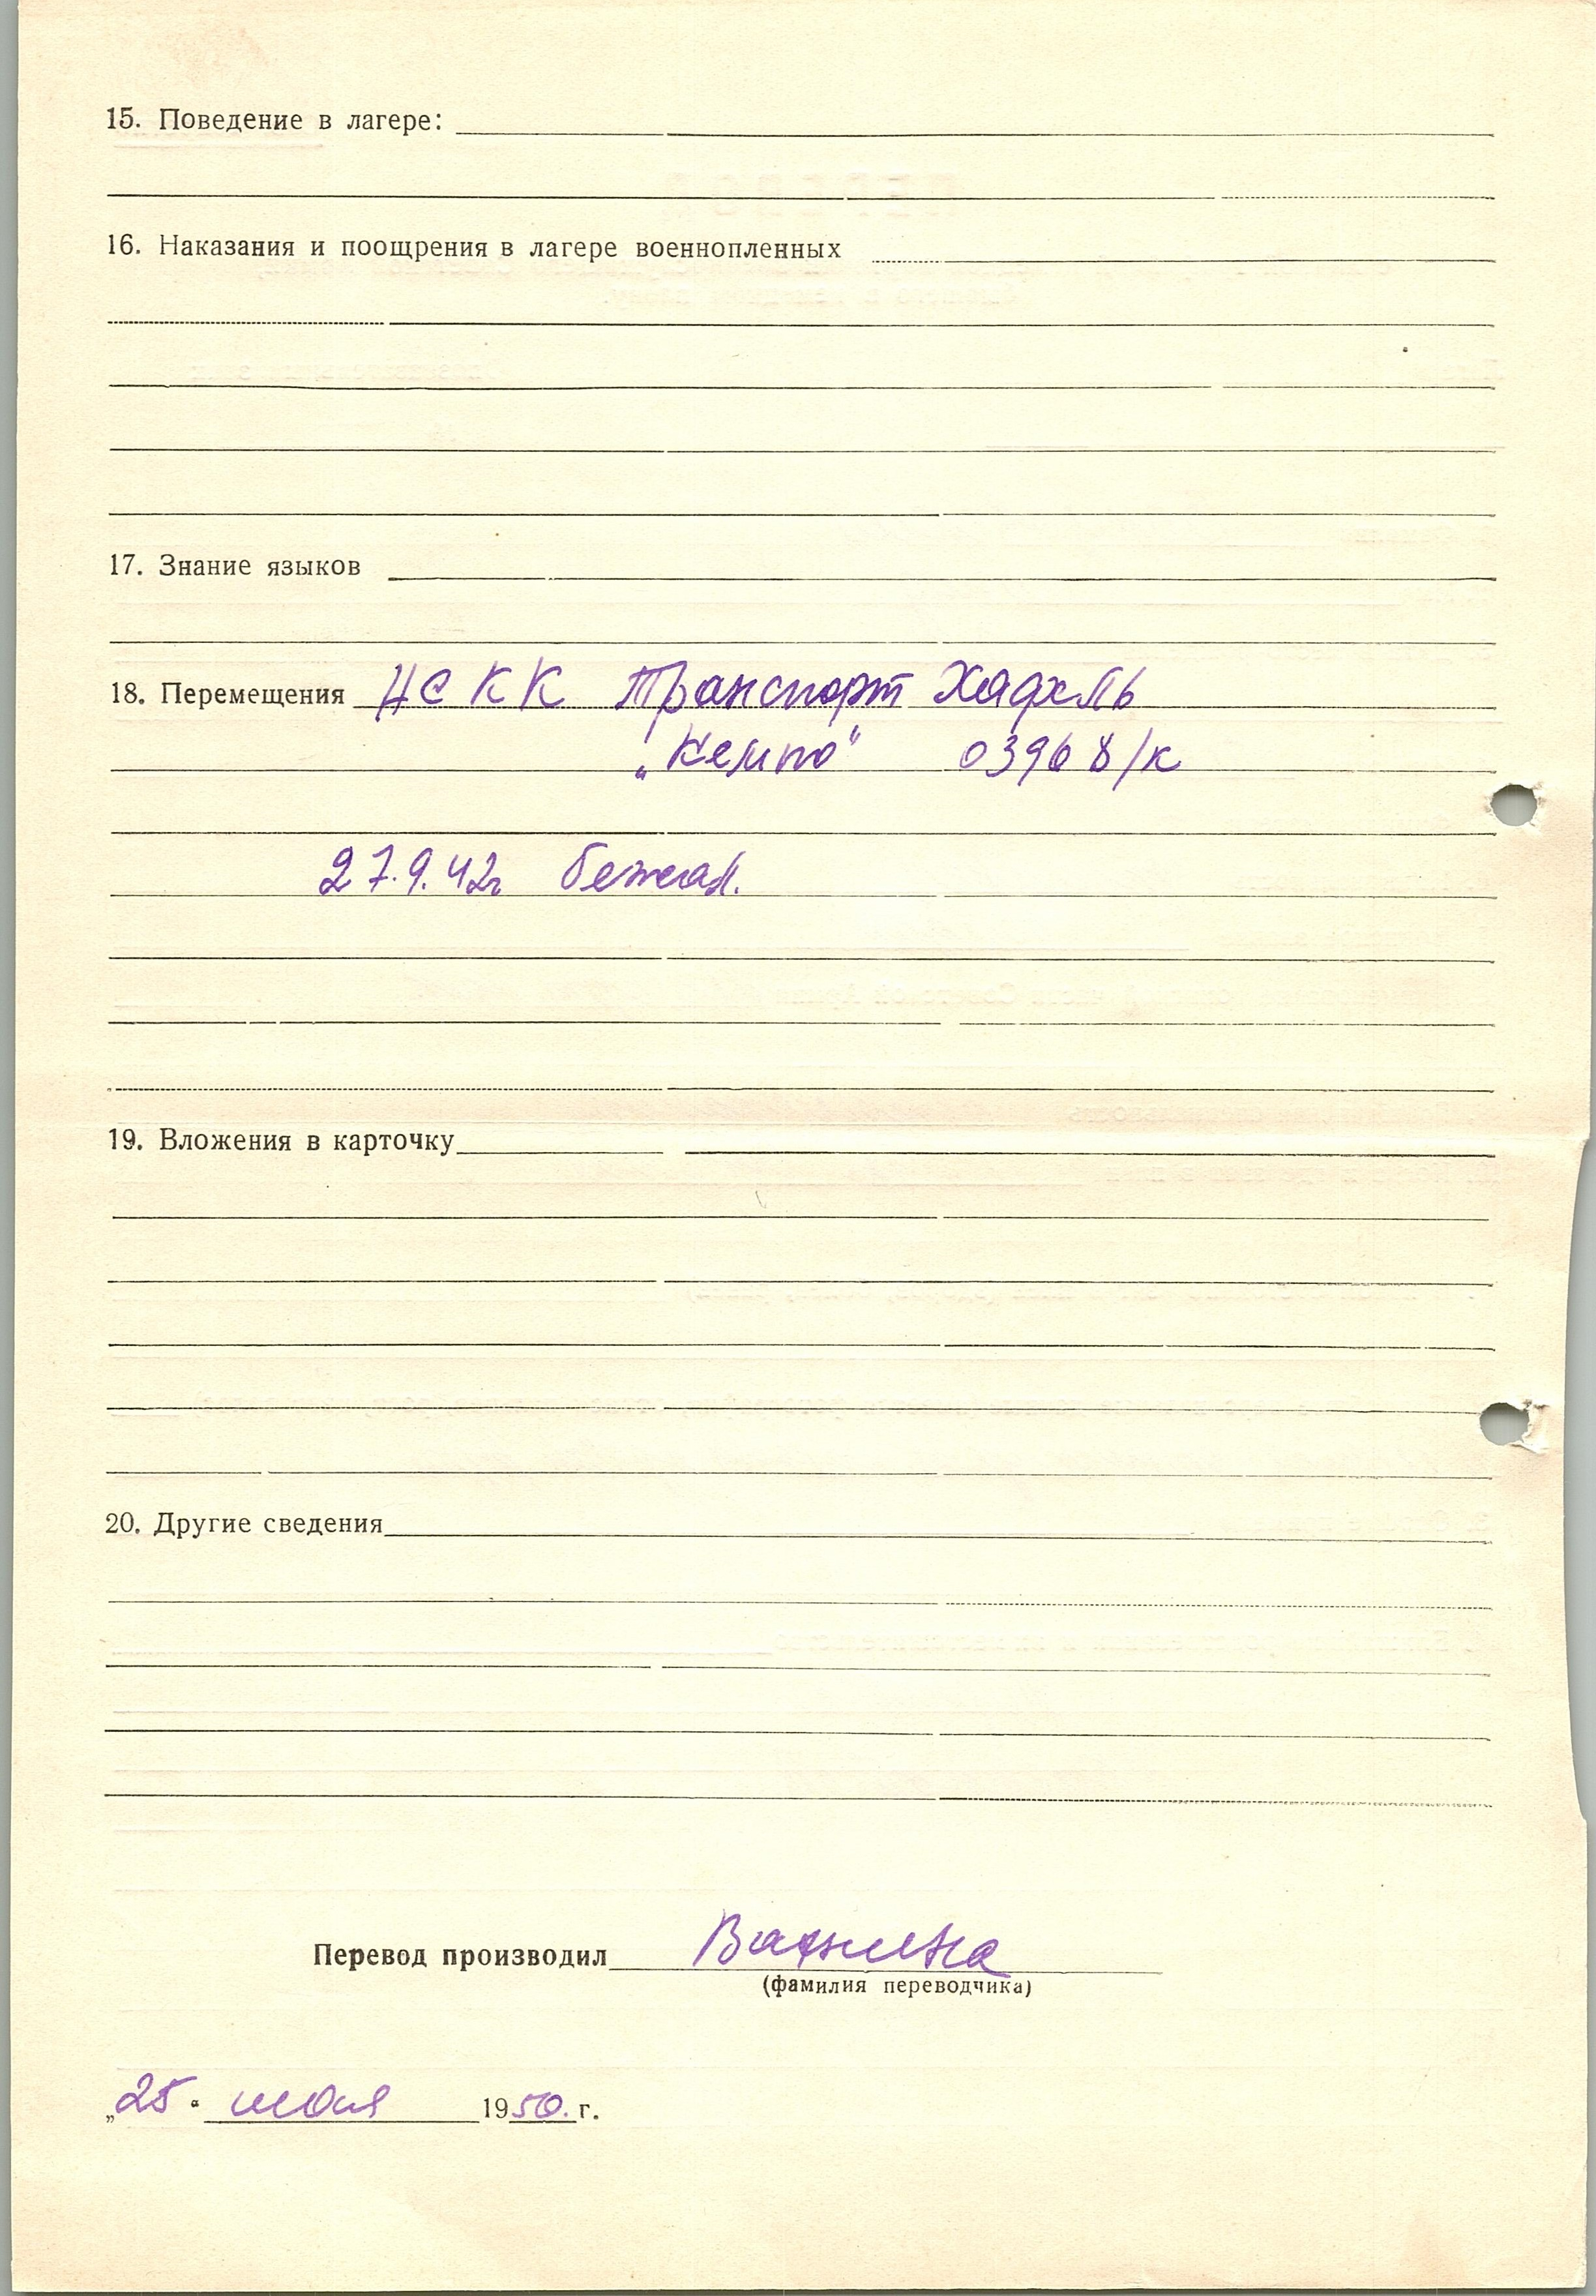 15. Поведение в лагере:
16. Наказания и поощрения в лагере военнопленных
17. Знание языков
18. Перемещения НСКК Транспорт
„Кемпо" 03968/к
27.9.42г бежал.
19. Вложения в карточку
20. Другие сведения
Перевод производил
(фамилия переводчика)
„25" июля 1950. г.